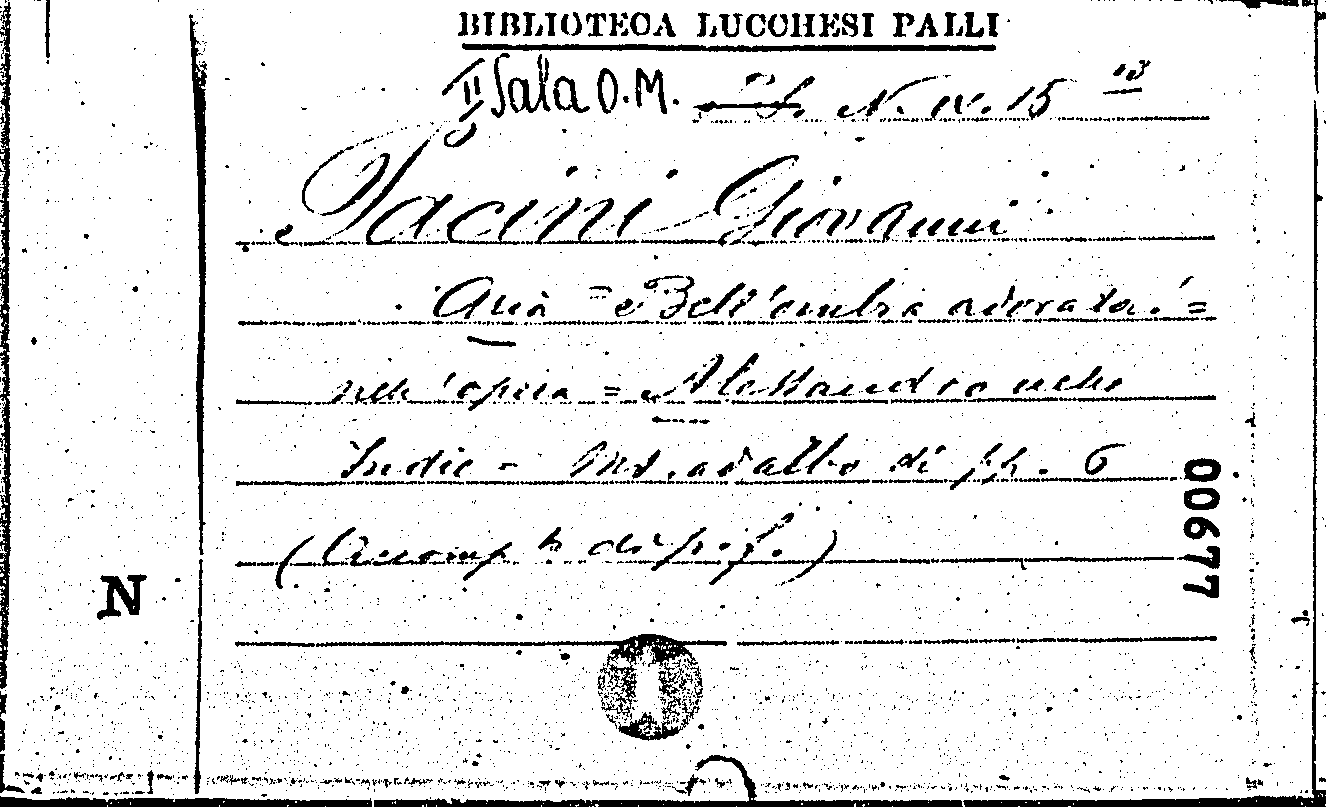 BIBLIOTECA LUCCHESI PALLI
II Sala O.M. N. IV. 15
Pacini Giovanni
Aria = Bell'ombra adorata! =
nell'opera = Alessandro nelle
Indie - Ms. ad albo di pp. 6
(Accomp.to di p.f.)
00677
N